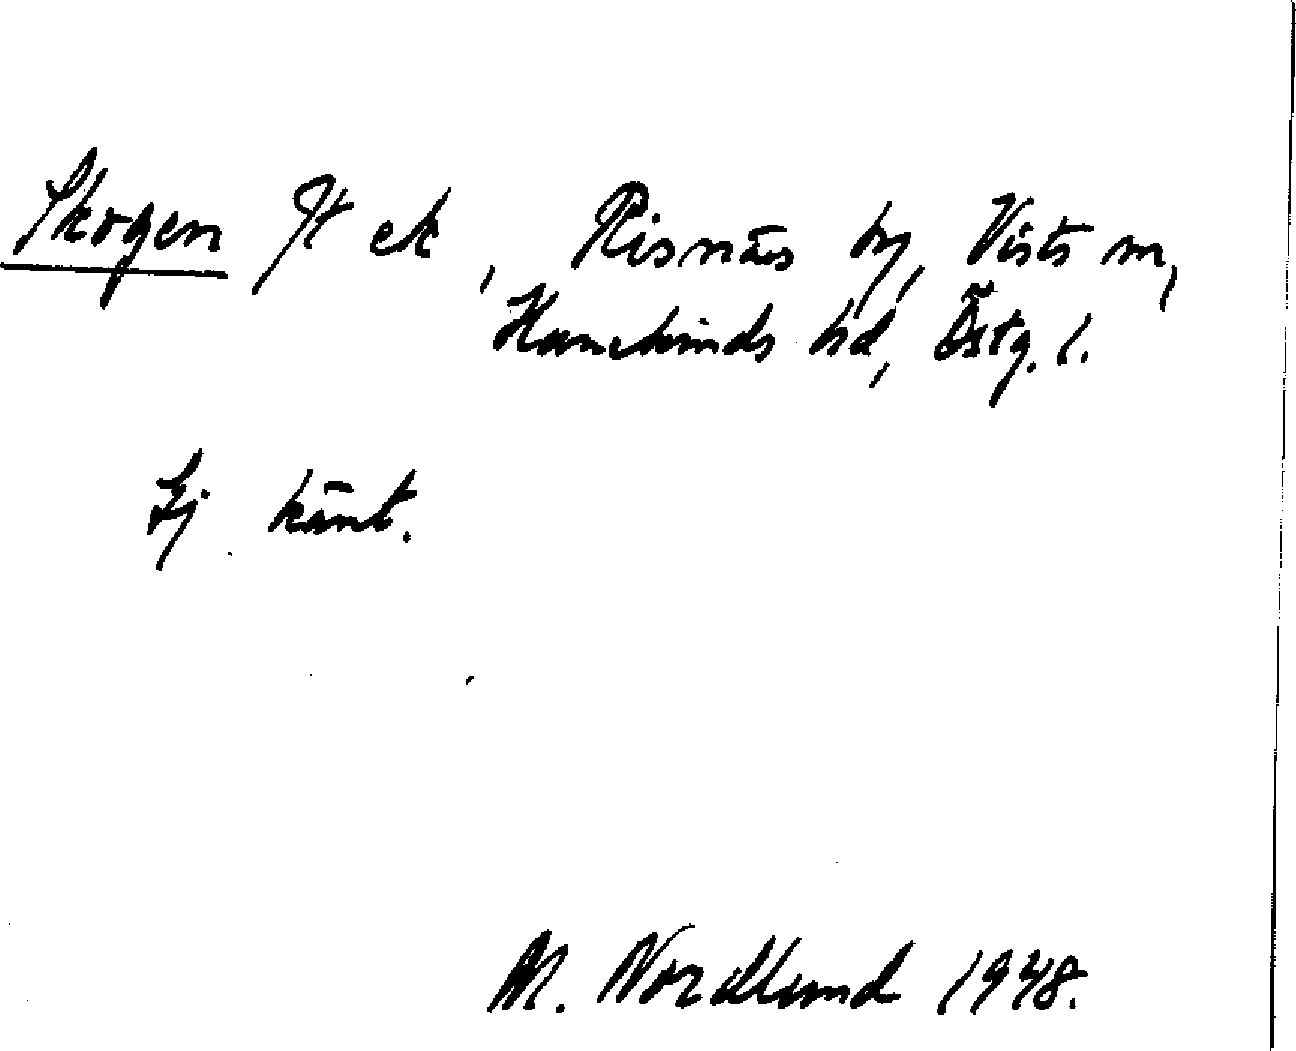 Skogen Jt ek, Risnäs by, Vists sn,
Hanekinds hd, Östg. l.
Ej känt.
M. Nordlund 1948.